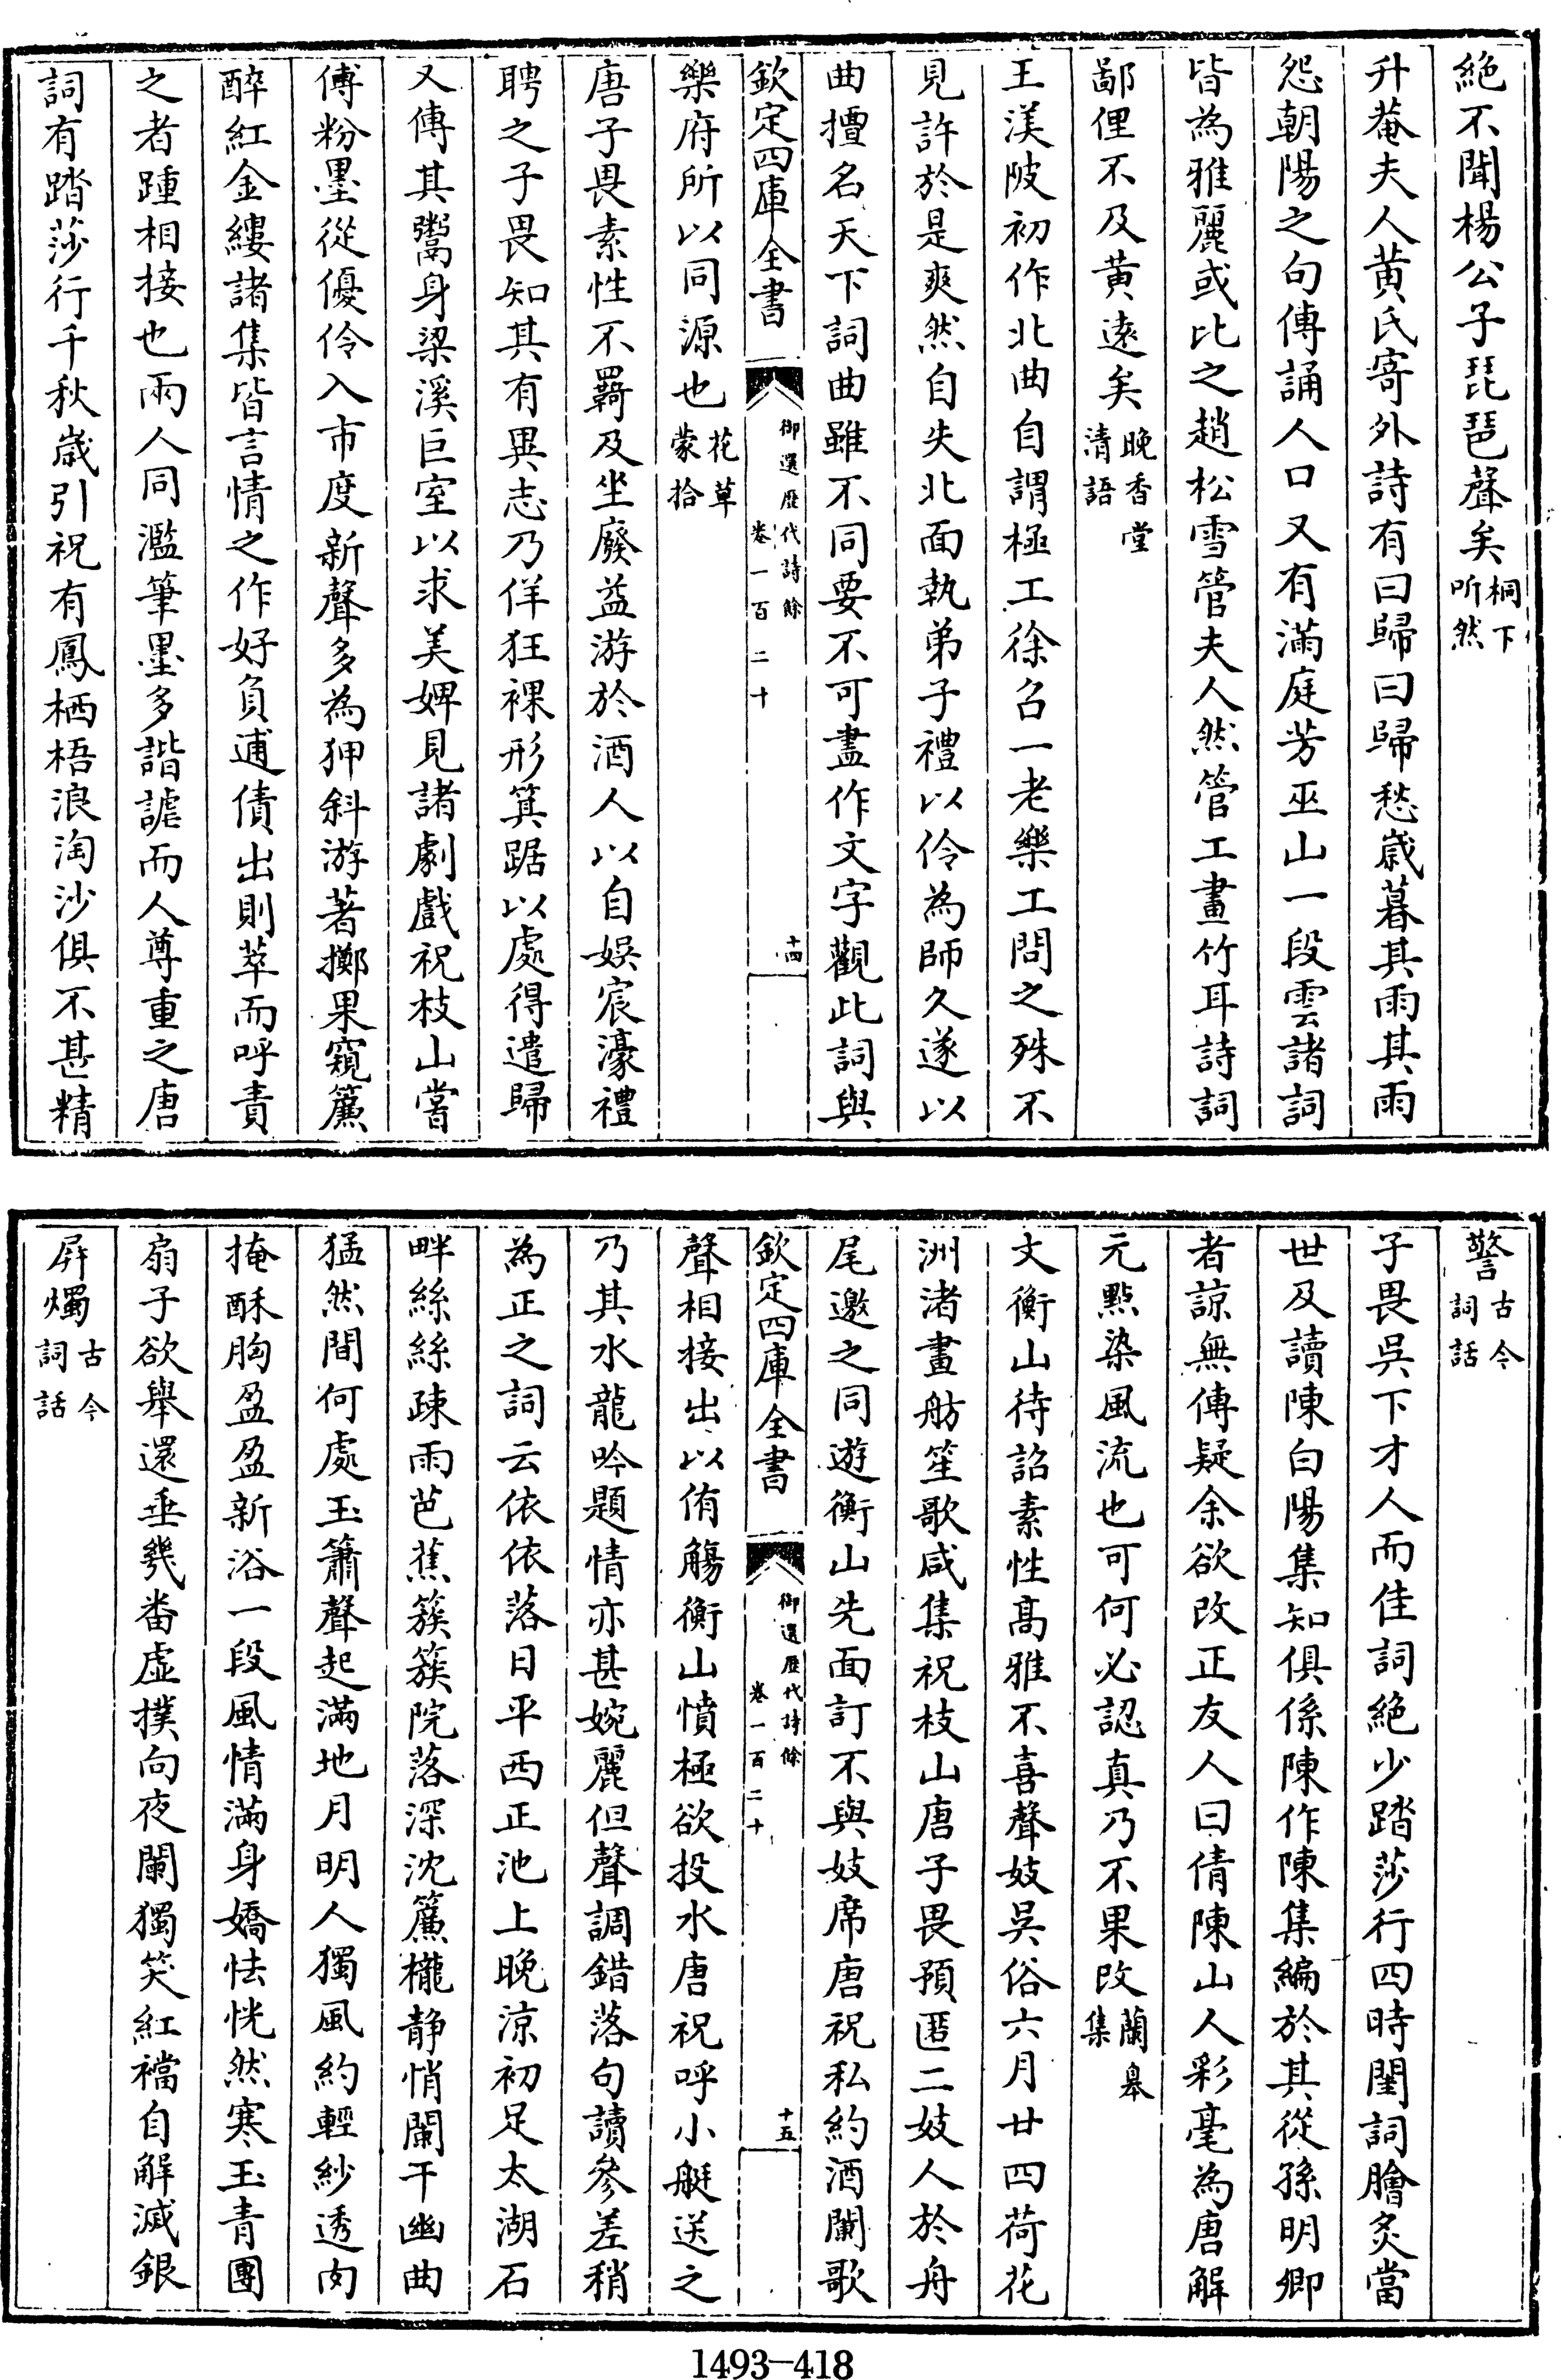 絶不聞楊公子琵琶聲矣桐下听然
升菴夫人黄氏寄外詩有曰歸曰歸愁嵗暮其雨其雨
怨朝陽之句傳誦人口又有滿庭芳巫山一段雲諸詞
皆為雅麗或比之趙松雪管夫人然管工畫竹耳詩詞
鄙俚不及黄逺矣晚香堂清語
王渼陂初作北曲自謂極工徐召一老樂工問之殊不
見許於是爽然自失北面執弟子禮以伶為師久遂以
曲擅名天下詞曲雖不同要不可盡作文字觀此詞與
欽定四庫全書 御選歴代詩餘 卷一百二十 十四
樂府所以同源也花草蒙拾
唐子畏素性不羇及坐廢益游於酒人以自娱宸濠禮
聘之子畏知其有異志乃佯狂裸形箕踞以處得遣歸
又傳其鬻身梁溪巨室以求美婢見諸劇戲祝枝山嘗
傅粉墨從優伶入市度新聲多為狎斜游著擲果窺簾
醉紅金縷諸集皆言情之作好負逋債出則萃而呼責
之者踵相接也兩人同濫筆墨多諧謔而人尊重之唐
詞有踏莎行千秋嵗引祝有鳳栖梧浪淘沙俱不甚精
警古今詞話
子畏吳下才人而佳詞絶少踏莎行四時閨詞膾炙當
世及讀陳白陽集知俱係陳作陳集編於其從孫明卿
者諒無傳疑余欲改正友人曰倩陳山人彩毫為唐解
元點染風流也可何必認真乃不果改蘭皋集
文衡山待詔素性髙雅不喜聲妓吳俗六月廿四荷花
洲渚畫舫笙歌咸集祝枝山唐子畏預匿二妓人於舟
尾邀之同遊衡山先面訂不與妓席唐祝私約酒闌歌
欽定四庫全書 御選歴代詩餘 卷一百二十 十五
聲相接出以侑觴衡山憤極欲投水唐祝呼小艇送之
乃其水龍吟題情亦甚婉麗但聲調錯落句讀參差稍
為正之詞云依依落日平西正池上晚涼初足太湖石
畔絲絲疎雨芭蕉簇簇院落深沈簾櫳静悄闌干幽曲
猛然間何處玉簫聲起滿地月明人獨風約輕紗透肉
掩酥胸盈盈新浴一段風情滿身嬌怯恍然寒玉青團
扇子欲舉還垂幾番虚撲向夜闌獨笑紅襠自解滅銀
屏燭古今詞話
1493-418